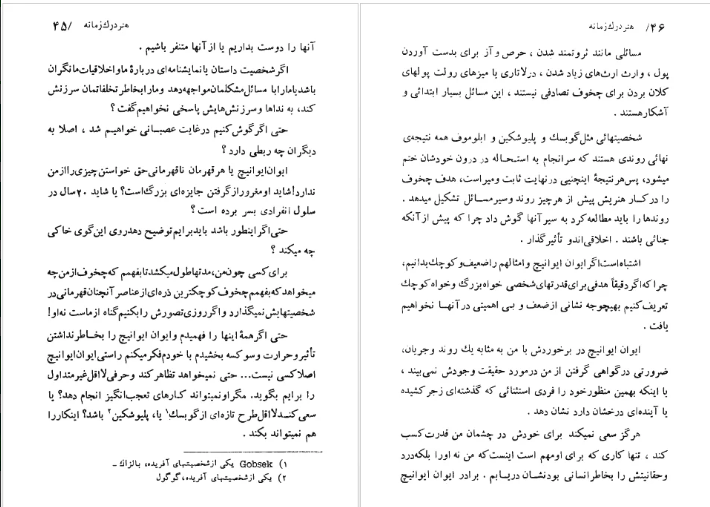 هنر درك زمانه /۴۵
آنها را دوست بداریم یا از آنها متنفر باشیم .
اگر شخصیت داستان یا نمایشنامه‌ای دربارهٔ ما و اخلاقیات ما نگران
باشد یا ما را با مسائل مشکلمان مواجهه دهد و ما را بخاطر تخلفاتمان سرزنش
کند، به نداها و سرزنش‌هایش پاسخی نخواهیم گفت ؟
حتی اگر گوش کنیم در غایت عصبانی خواهیم شد ، اصلا به
دیگران چه ربطی دارد ؟
ایوان ایوانیچ یا هر قهرمان ناقهرمانی حق خواستن چیزی را از من
ندارد! شاید او مغرور از گرفتن جایزه‌ای بزرگ است؟ یا شاید ۲۰ سال در
سلول انفرادی بسر برده است ؟
حتی اگر اینطور باشد باید برایم توضیح دهد روی این گوی خاکی
چه میکند ؟
برای کسی چون من، مدتها طول میکشد تا بفهمم که چخوف از من چه
میخواهد که بفهمم چخوف کوچکترین ذره‌ای از عناصر آنچنان قهرمانی در
شخصیتهایش نمیگذارد و اگر روزی تصورش را بکنیم گناه از ماست نه او!
حتی اگر همهٔ اینها را فهمیدم و ایوان ایوانیچ را بخاطر نداشتن
تأثیر و حرارت و سوکسه بخشیدم با خودم فکر میکنم راستی ایوان ایوانیچ
اصلا کسی نیست... حتی نمیخواهد تظاهر کند و حرفی لااقل غیر متداول
را برایم بگوید. مگر او نمیتواند کارهای تعجب‌انگیز انجام دهد؟ یا
سعی کند لااقل طرح تازه‌ای از گوبسك۱ یا، پلیوشکین۲ باشد؟ اینکار را
هم نمیتواند بکند .
۱) Gobsek یکی از شخصیتهای آفریده، بالزاك ـ
۲) یکی از شخصیتهای آفریده، گوگول
۴۶/ هنر درك زمانه
مسائلی مانند ثروتمند شدن ، حرص و آز برای بدست آوردن
پول ، وارث ارث‌های زیاد شدن ، در لاتاری یا میزهای رولت پولهای
کلان بردن برای چخوف تصادفی نیستند ، این مسائل بسیار ابتدائی و
آشکار هستند .
شخصیتهائی مثل گوبسك و پلیوشکین و ابلوموف همه نتیجه‌ی
نهائی روندی هستند که سرانجام به استحاله در درون خودشان ختم
میشود، پس هر نتیجهٔ اینچنینی در نهایت ثابت و میراست، هدف چخوف
را در کار هنریش پیش از هر چیز روند و سیر مسائل تشکیل میدهد .
روندها را باید مطالعه کرد به سیر آنها گوش داد چرا که پیش از آنکه
جنائی باشند . اخلاقی‌اند و تأثیرگذار .
اشتباه است اگر ایوان ایوانیچ و امثالهم را ضعیف و کوچك بدانیم،
چرا که اگر دقیقاً هدفی برای قدرتهای شخصی خواه بزرگ و خواه کوچك
تعریف کنیم بهیچوجه نشانی از ضعف و بی اهمیتی در آنها نخواهیم
یافت .
ایوان ایوانیچ در برخوردش با من به مثابه یك روند و جریان،
ضرورتی در گواهی گرفتن از من در مورد حقیقت وجودش نمی‌بیند ،
یا اینکه بهمین منظور خود را فردی استثنائی که گذشته‌ای زجر کشیده
یا آینده‌ای درخشان دارد نشان دهد .
هرگز سعی نمیکند برای خودش در چشمان من قدرت کسب
کند ، تنها کاری که برای او مهم است اینست که من نه او را بلکه درد
و حقانیتش را بخاطر انسانی بودنشان دریابم . برادر ایوان ایوانیچ